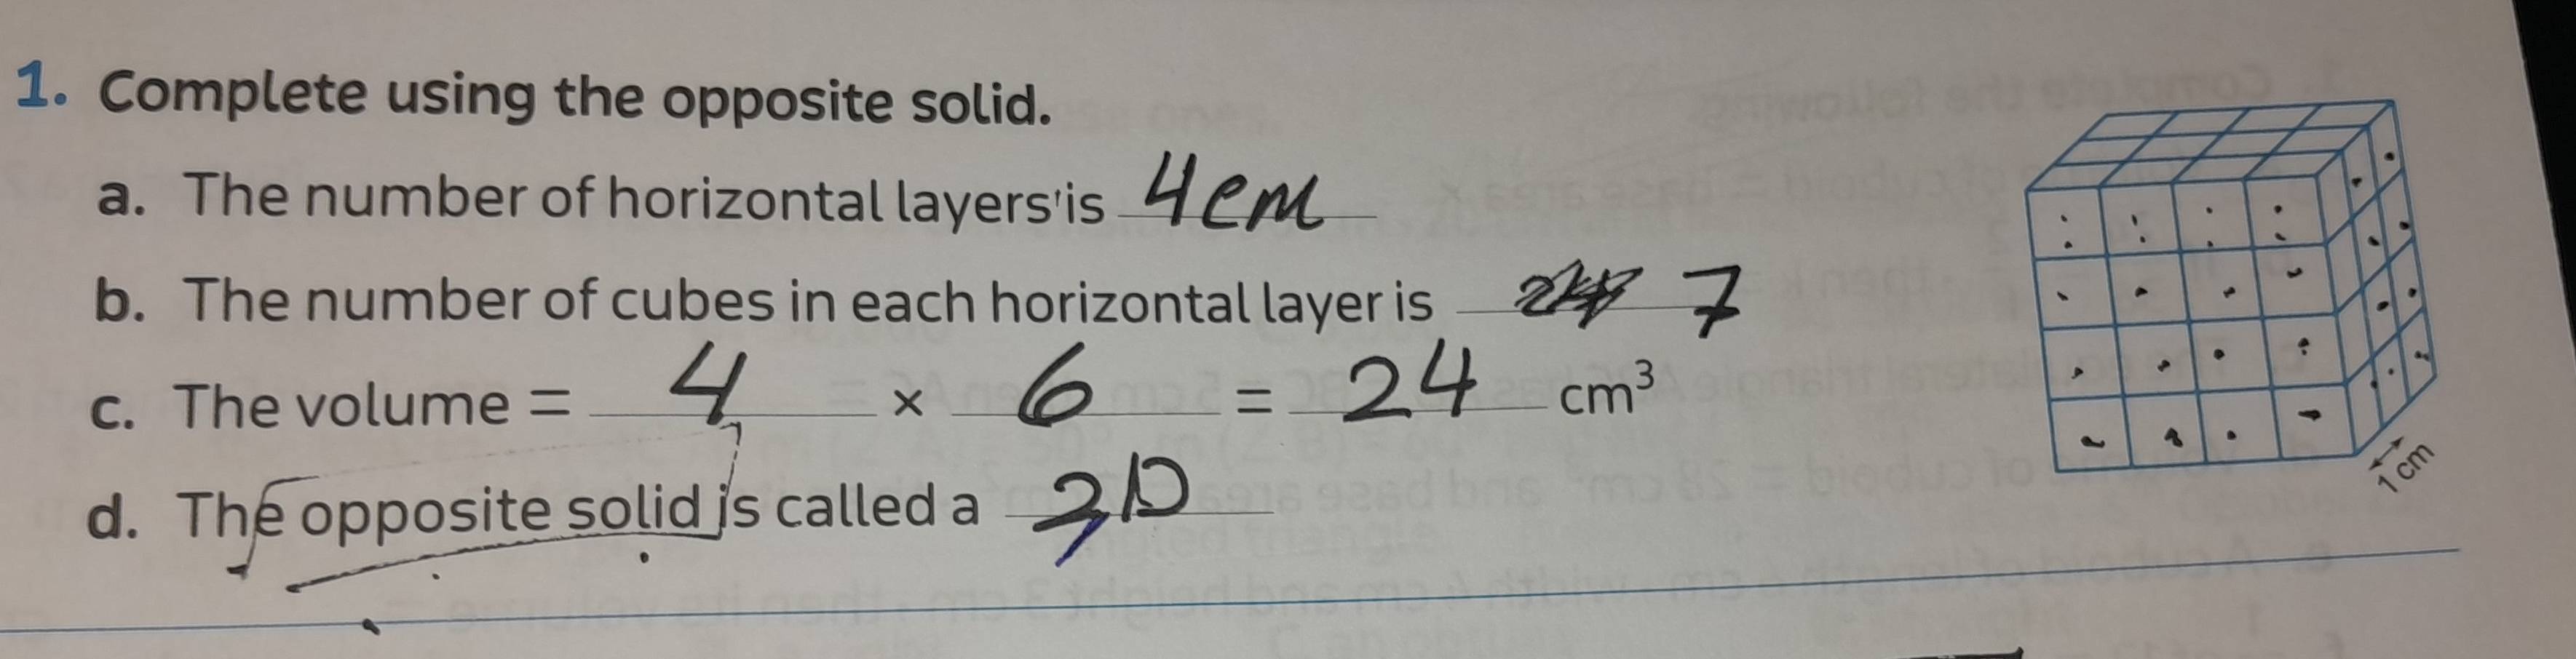 1. Complete using the opposite solid.
a. The number of horizontal layers is 4cm
b. The number of cubes in each horizontal layer is 7
c. The volume = 4 × 6 = 24 cm³
d. The opposite solid is called a 3D
1 cm